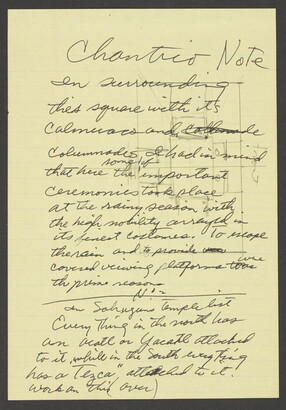 Chantrio Note
In surrounding
this square with its
calmecacs and
columnades I had in mind
that here some of the important
ceremonies took place
at the rainy season with
the high nobility arrayed in
its finest costumes. To escape
the rain and to provide
covered viewing platforms were
the prime reasons
In Sahagun's temple list
Everything in the north has
an acatl or Yacatl attached
to it, while in the South everything
has a "Tezca" attached to it.
work on this over)